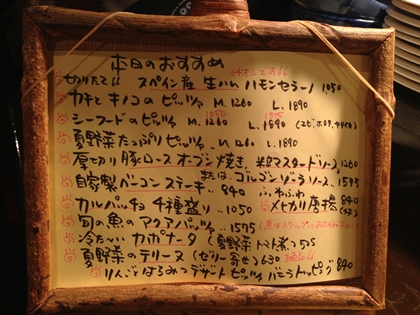 本日のおすすめ
イチオシです!!
切りたて!! スペイン産 生ハム ハモンセラーノ 1050
カチとキノコのピッツァ M.1260 L.1890
シーフードのピッツァ M.1260 L.1890
夏野菜たっぷりピッツァ M.1260 L.1890
厚切り豚ロースオーブン焼き、粒マスタードソース、1260
または、ゴルゴンゾーラソース、1575
自家製ベーコンステーキ 840
ふわふわ
カルパッチョ4種盛り..1050
メヒカリ唐揚 840
旬の魚のアクアパッツァ..1575
冷た〜いカポナータ(夏野菜トマト煮)525
夏野菜のテリーヌ(ゼリー寄せ)630
りんごはちみつデザートピッツァ バニラトッピング 840